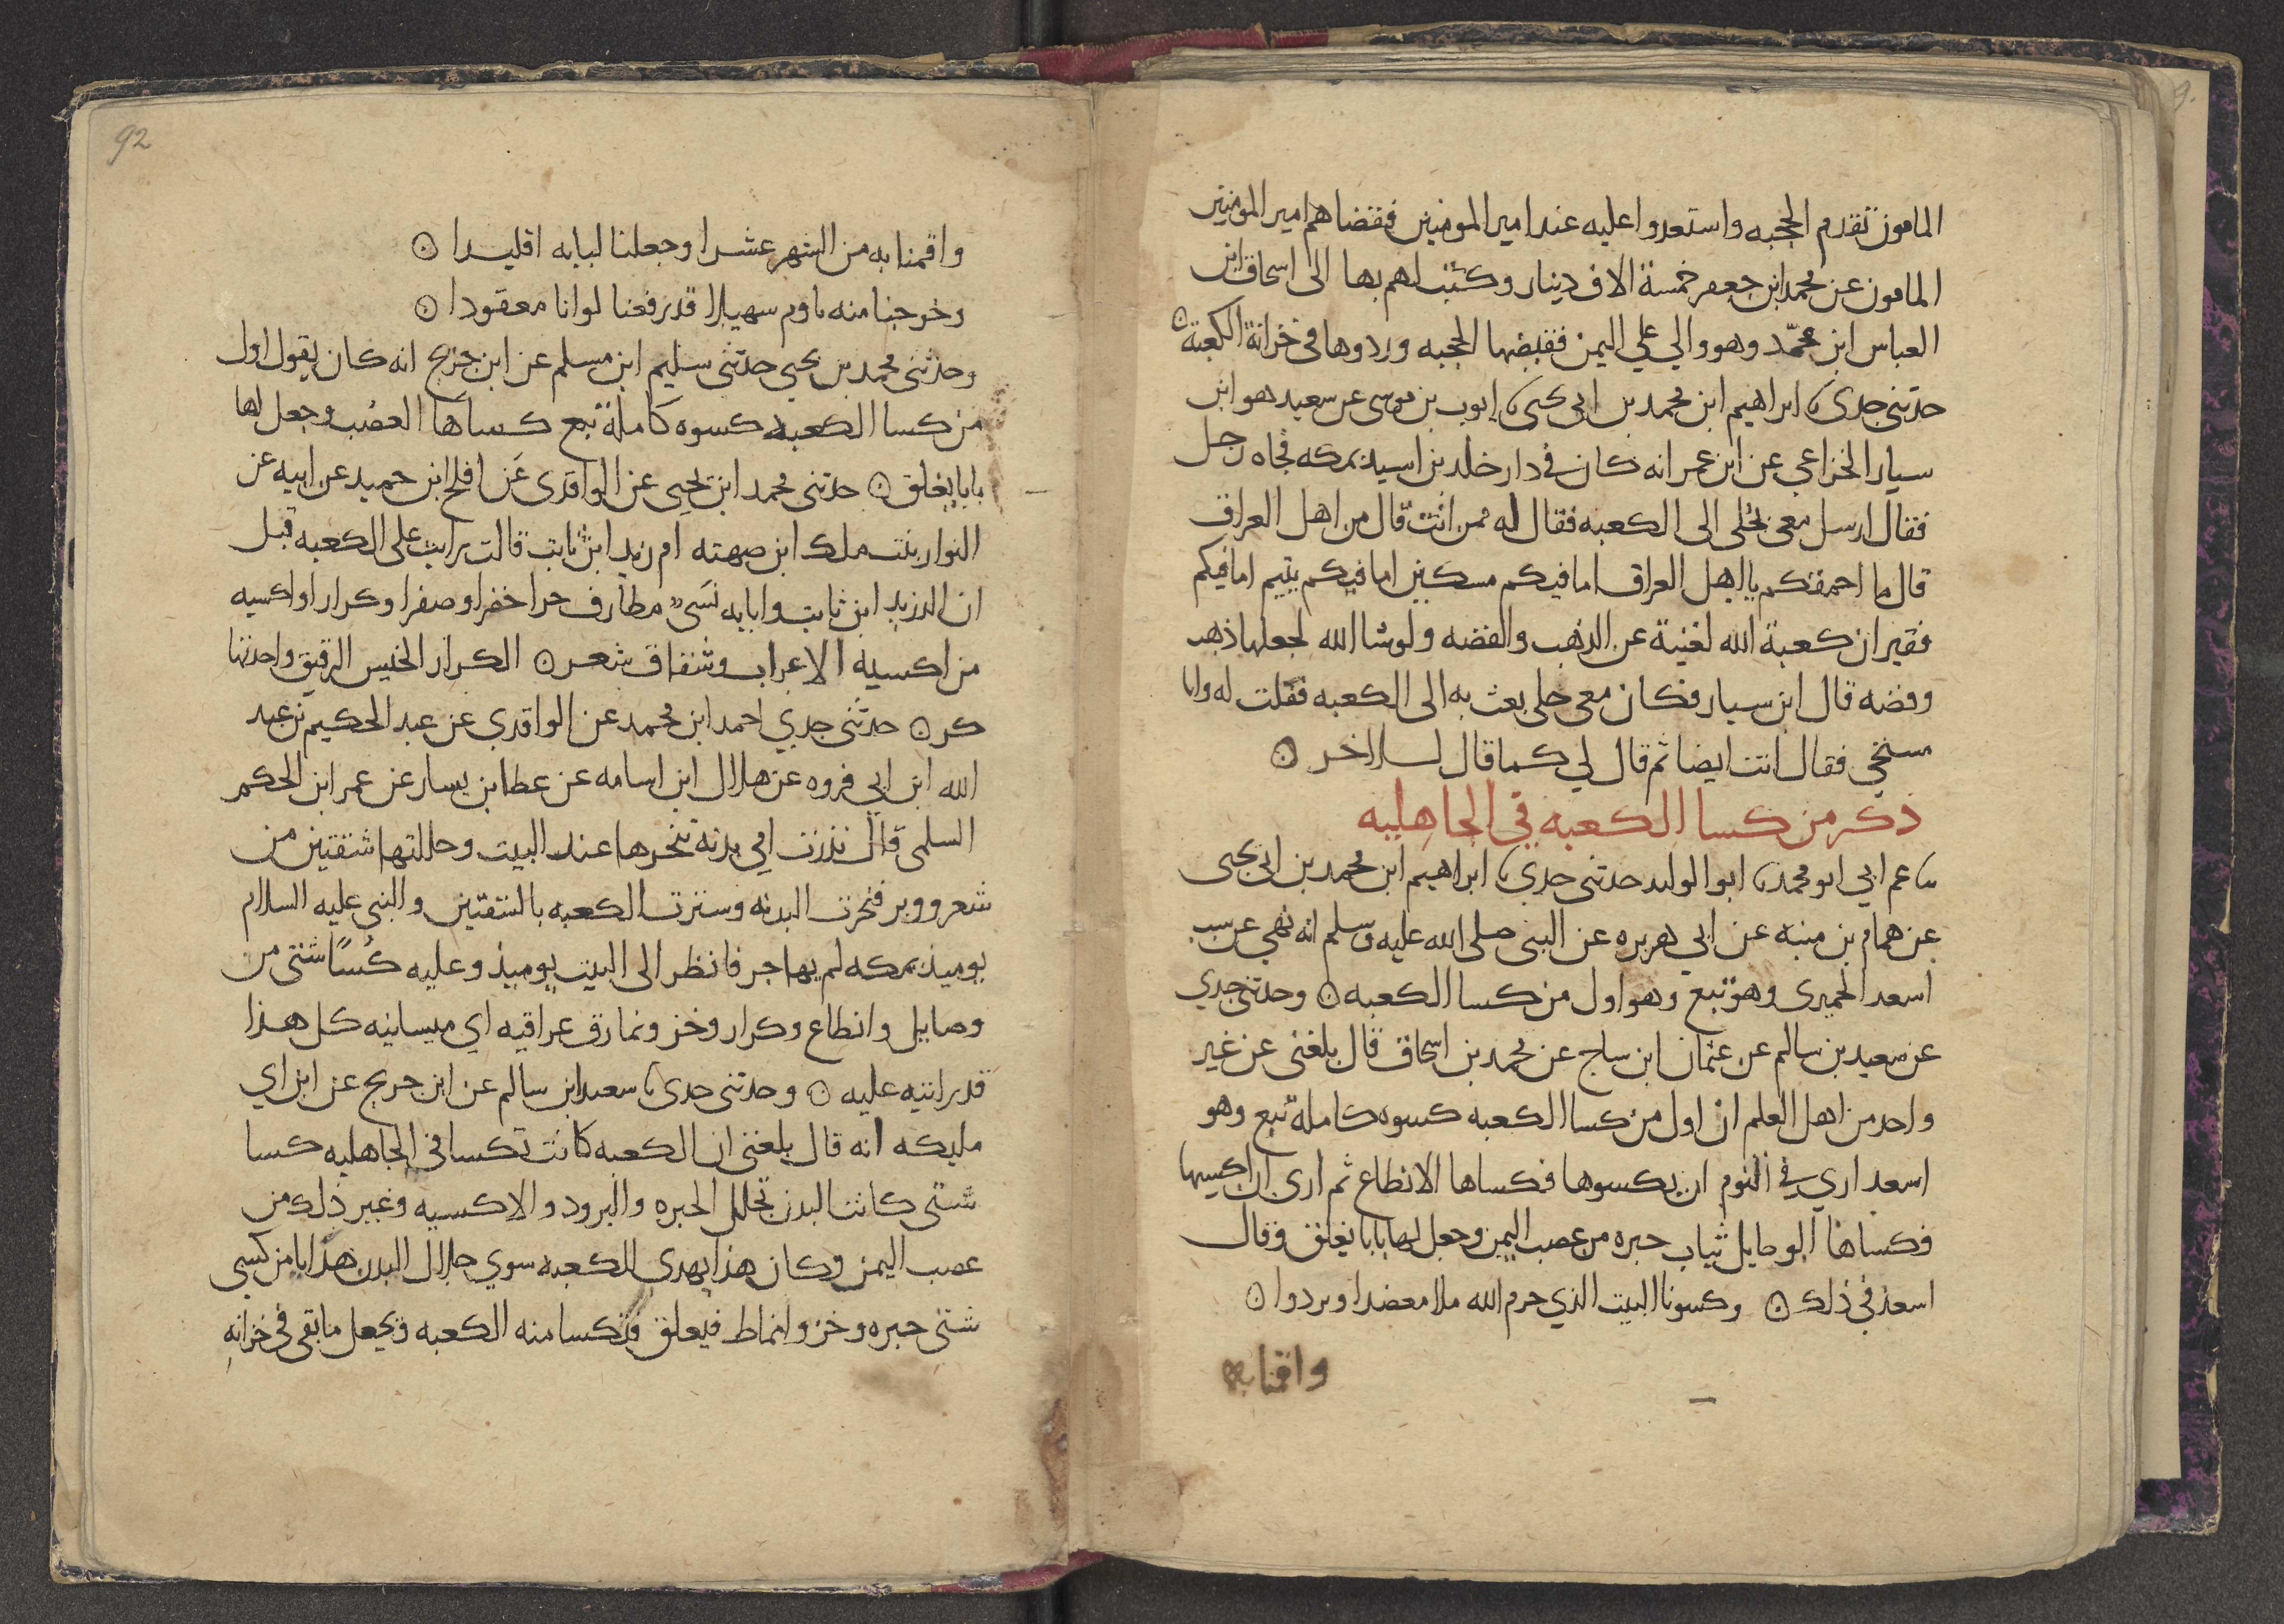 المامون تقدم الحجبه واستعدوا عليه عند امير المومنين فقضاهم امير المومنين
المامون عن محمد ابن جعفر خمسة الاف دينار وكتب لهم بها الى اسحاق ابن
العباس ابن محمّد وهو والي علي اليمن فقبضها الحجبه وردوها في خزانة الكعبة ن
حدثنى جدى نا ابراهيم ابن محمد بن ابى يحيى نا ايوب بن موسى عن سعيد هو ابن
سيار الخزاعي عن ابن عمر انه كان في دار خلد بن اسيد بمكه فجاه رجل
فقال ارسل معى بحلى الى الكعبه فقال له ممن انت قال من اهل العراق
قال ما احمقكم يا اهل العراق اما فيكم مسكين اما فيكم يتيم اما فيكم
فقير ان كعبة الله لغنية عن الذهب والفضه ولو شا الله لجعلها ذهب
وفضه قال ابن سيار فكان معى حلى بعث به الى الكعبه فقلت له وانا
مستحي فقال انت ايضا ثم قال لي كما قال لـلاخر ن
ذكر من كسا الكعبه في الجاهليه
نا عم ابي ابو محمد نا ابو الوليد حدثنى جدى نا ابراهيم ابن محمد بن ابى يحيى
عن همام بن منبه عن ابي هريره عن النبى صلى الله عليه وسلم انه نهي عن سب
اسعد الحميرى وهو تبع وهو اول من كسا الكعبه ن وحدثنى جدي
عن سعيد بن سالم عن عثمان ابن ساج عن محمد بن اسحاق قال بلغنى عن غير
واحد من اهل العلم ان اول من كسا الكعبه كسوه كاملة تبع وهو
اسعد اري في النوم ان يكسوها فكساها الانطاع ثم ارى ان اكسيها
فكساها الوصايل ثياب حبره من عصب اليمن وجعل لها بابا يغلق وقال
اسعد في ذلك ن وكسونا البيت الذي حرم الله ملا معضدا وبردوا ن
واقمنا به
92
واقمنا به من الشهر عشرا وجعلنا لبابه اقليدا ن
وخرجنا منه ناوم سهيلا قد رفعنا لوانا معقودا ن
وحدثنى محمد بن يحيى حدثنى سليم ابن مسلم عن ابن جريج انه كان يقول اول
من كسا الكعبه كسوه كاملة تبع كساها العصب وجعل لها
بابا يغلق ن حدثنى محمد ابن يحيى عن الواقدى عن افلح ابن حميد عن ابيه عن
النوار بنت ملك ابن صهته ام زيد ابن ثابت قالت رايت على الكعبه قبل
ان الد زيد ابن ثابت وانا به نسى مطارف خزا خضرا وصفرا وكرارا واكسيه
من اكسية الاعراب وشقاق شعر ن الكرار الخيس الرقيق واحدتها
كر ن حدثنى جدي احمد ابن محمد عن الواقدى عن عبد الحكيم بن عبد
الله ابن ابي فروه عن هلال ابن اسامه عن عطا ابن يسار عن عمر ابن الحكم
السلمى قال نذرت امي بدنة تنحرها عند البيت وحللتها شقتين من
شعر ووبر فنحرت البدنه وسترت الكعبه بالشقتين والنبى عليه السلام
يوميذ بمكه لم يهاجر فانظر الى البيت يوميذ وعليه كُسًا شتى من
وصايل وانطاع وكرار وخز ونمارق عراقيه اي ميسانيه كل هذا
قد رايته عليه ن وحدثنى جدى نا سعيد ابن سالم عن ابن جريج عن ابن ابي
مليكه انه قال بلغنى ان الكعبه كانت تكسا في الجاهليه كسا
شتى كانت البدن تجلل الحبره والبرود والاكسيه وغير ذلك من
عصب اليمن وكان هذا يهدى للكعبه سوي جلال البدن هدايا من كسى
شتى حبره وخز وانماط فيعلق فتكسا منه الكعبه ويجعل ما بقى في خزانه